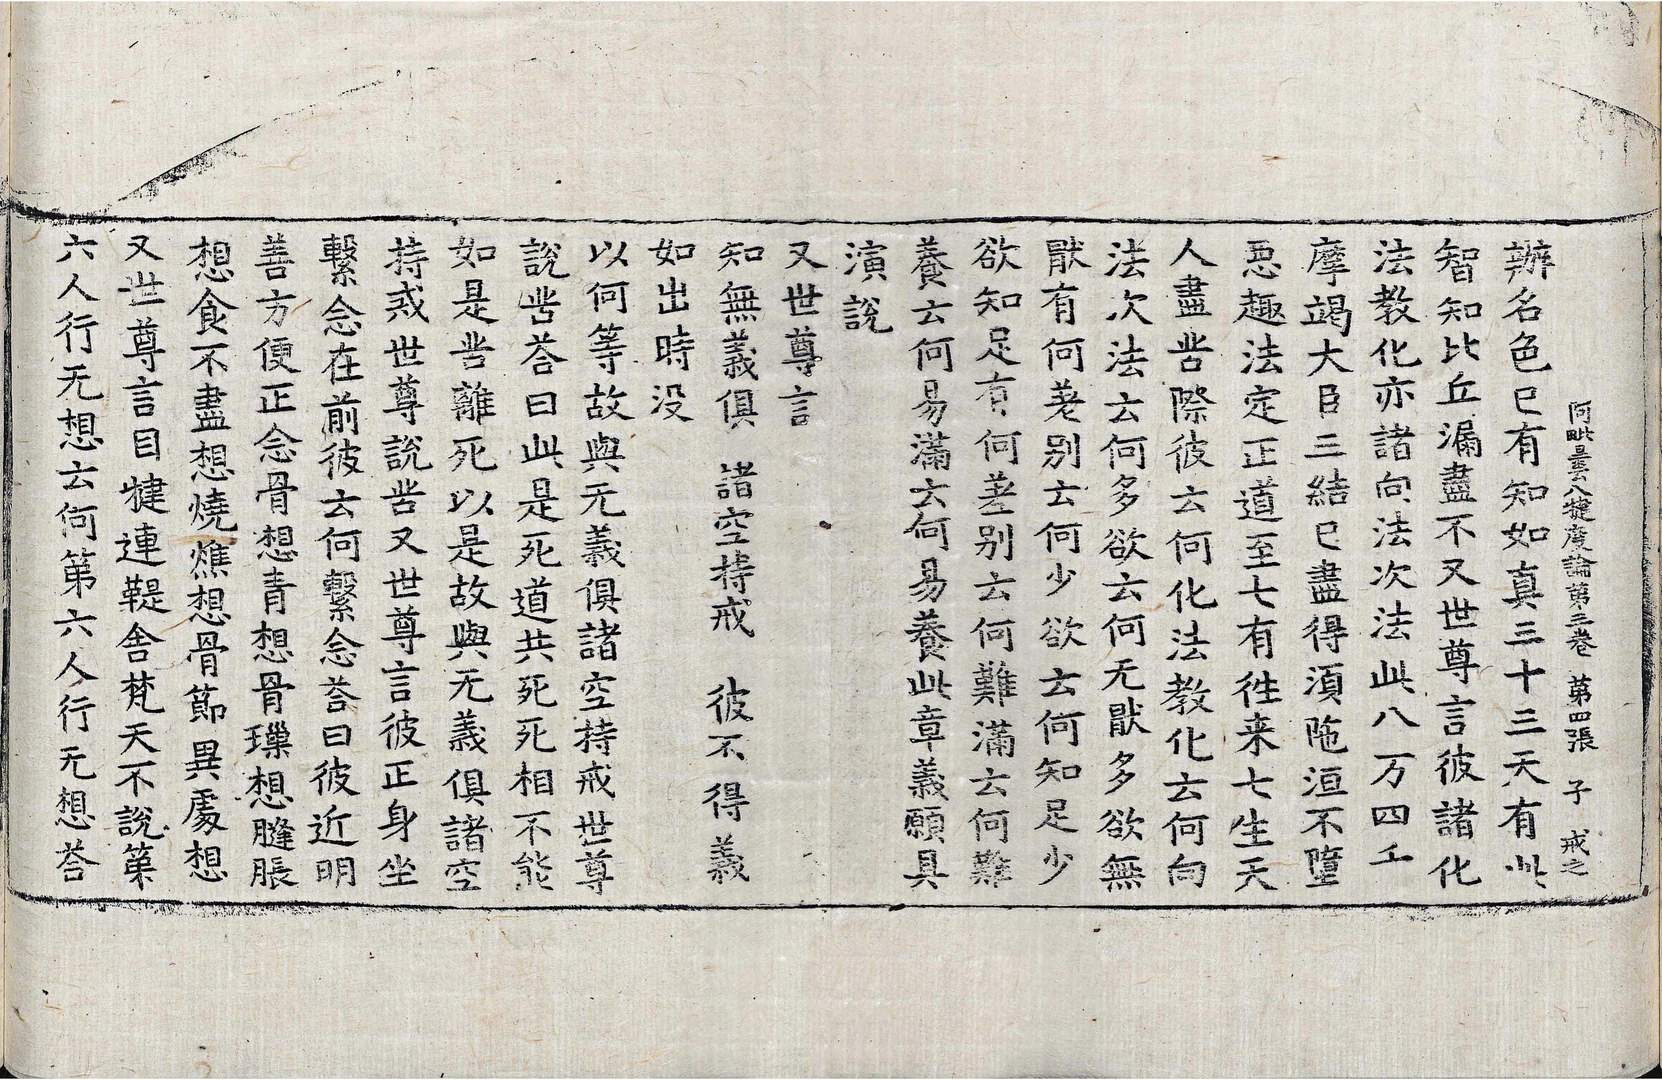 阿毗曇八揵度論第二卷 第四張 子 戒之
辦名色已有知如真三十三天有此
智知比丘漏盡不又世尊言彼諸化
法教化亦諸向法次法此八万四千
摩竭大臣三結已盡得湏陁洹不墮
惡趣法定正道至七有徃来七生天
人盡苦際彼云何化法教化云何向
法次法云何多欲云何无猒多欲無
猒有何差別云何少欲云何知足少
欲知足有何差別云何難滿云何難
養云何易滿云何易養此章義願具
演說
又世尊言
知無義俱 諸空持戒 彼不得義
如出時没
以何等故與无義俱諸空持戒世尊
說苦荅曰此是死道共死死相不能
如是苦離死以是故與无義俱諸空
持戒世尊說苦又世尊言彼正身坐
繫念在前彼云何繫念荅曰彼近明
善方便正念骨想青想骨璅想膖脹
想食不盡想燒燋想骨節異處想
又世尊言目揵連鞮舍梵天不說第
六人行无想云何第六人行无想荅